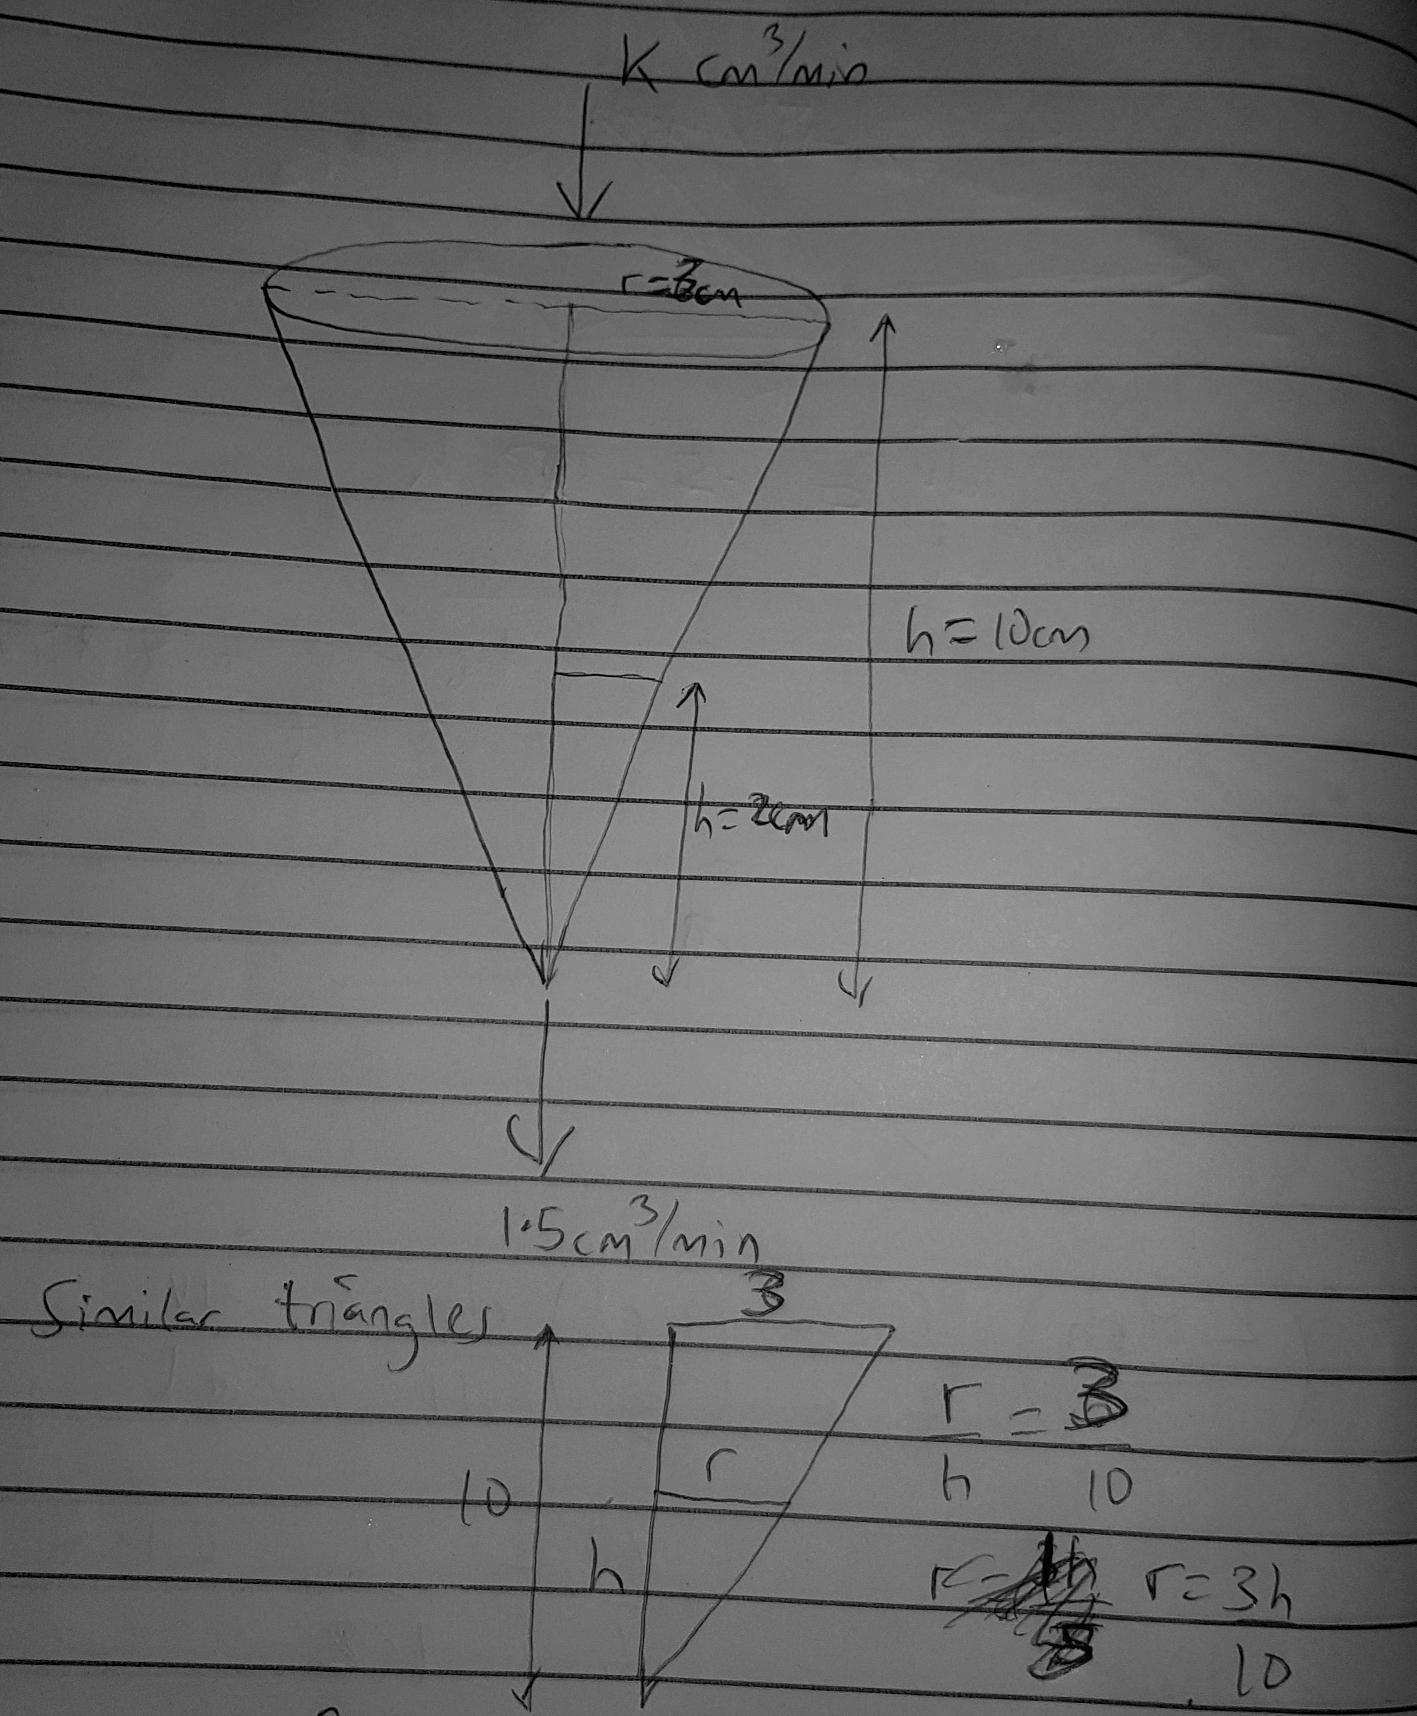 K cm³/min
r=3cm
h=10cm
h=2cm
1.5cm³/min
Similar triangles
3
10
r
h
r/h = 3/10
r=3h/10